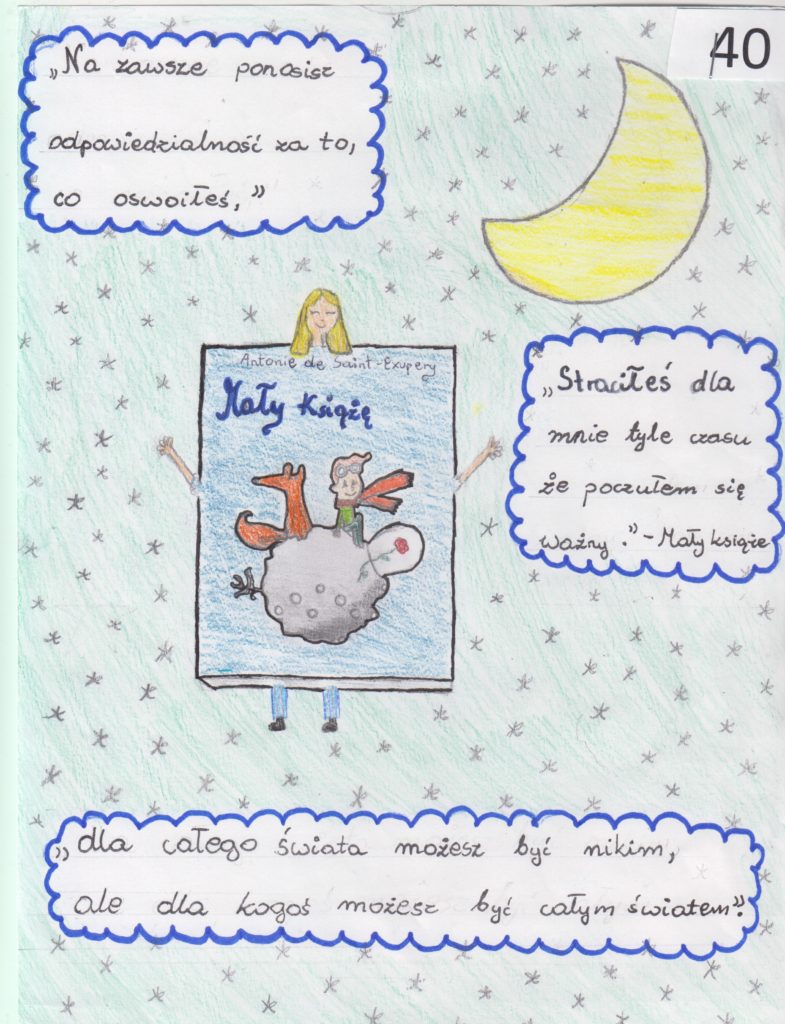 40
„Na zawsze ponosisz
odpowiedzialność za to,
co oswoiłeś,”
Antonie de Saint-Exupery
Mały Książę
„Straciłeś dla
mnie tyle czasu
że poczułem się
ważny.”-Mały książe
„dla całego świata możesz być nikim,
ale dla kogoś możesz być całym światem”.